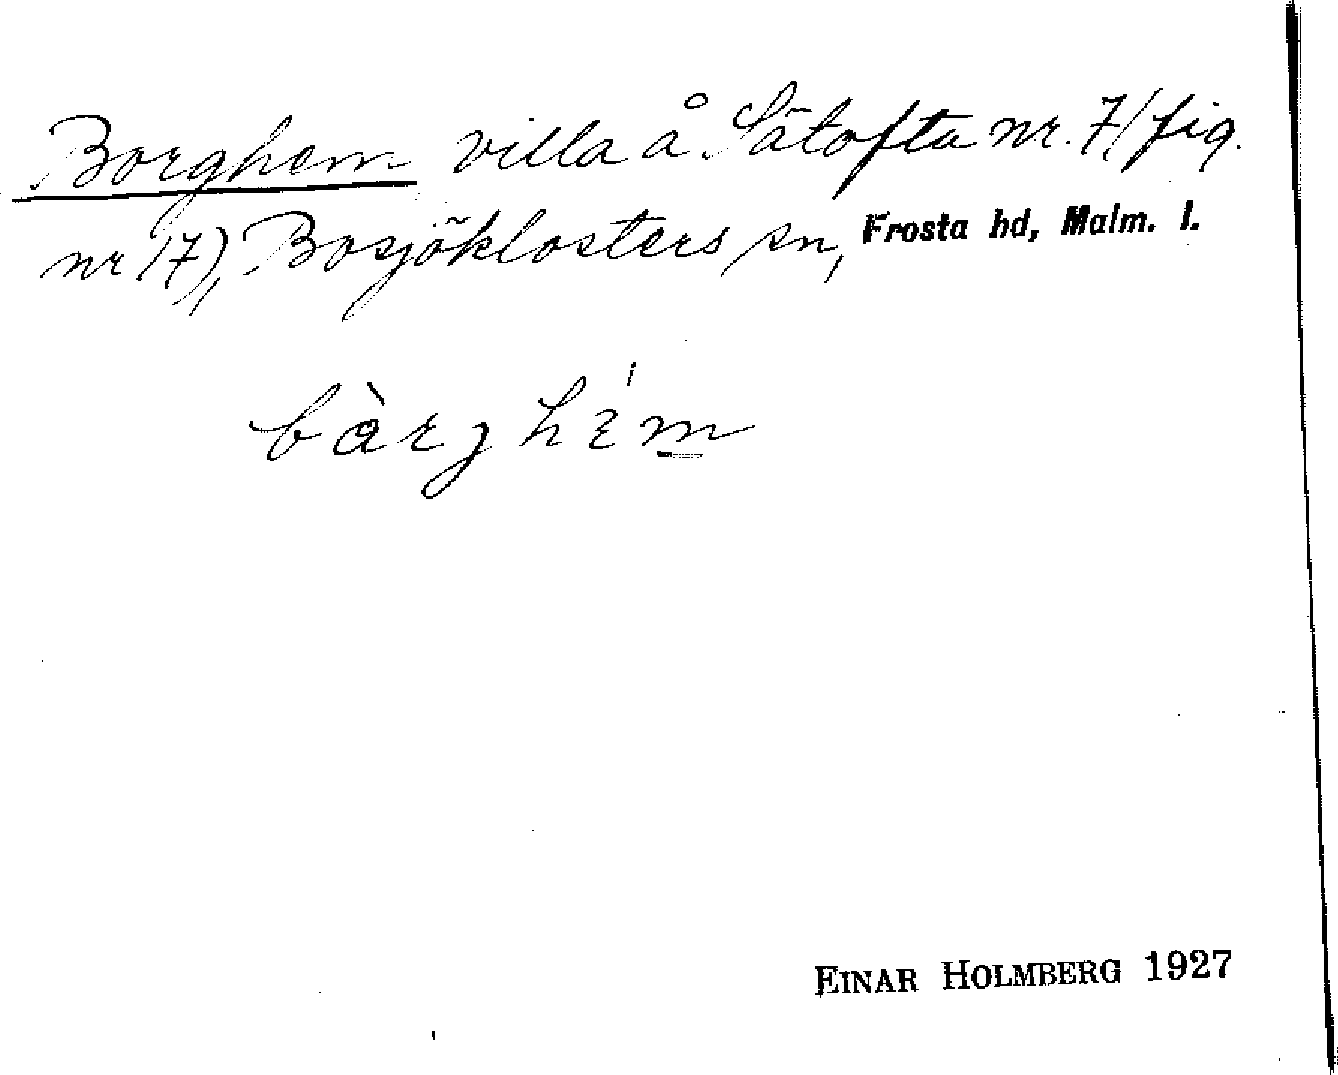 Borghem villa å Sätofta nr. 7 (fig.
nr 17), Bosjöklosters sn, Frosta hd, Malm. l.
bàrghem
EINAR HOLMBERG 1927